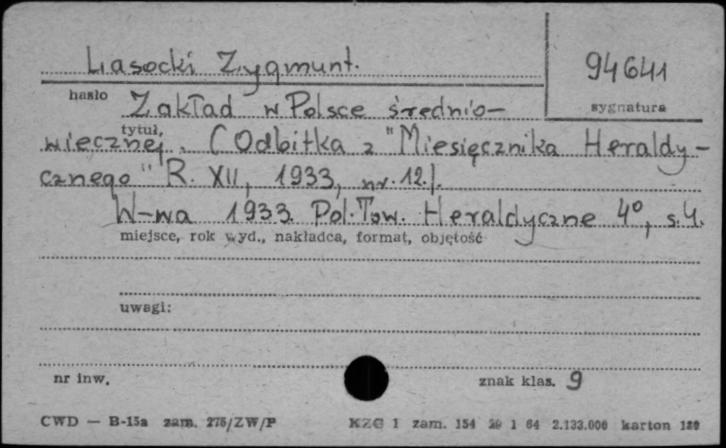 Lasocki Zygmunt.
94641
hasło
sygnatura
Zakład w Polsce średnio-
tytuł,
wiecznej. (Odbitka z "Miesięcznika Heraldy-
cznego" R. XII, 1933, nr. 12.).
W-wa 1933 Pol. Tow. Heraldyczne 4°, s. 4.
miejsce, rok wyd., nakładca, format, objętość
uwagi:
nr inw.
znak klas. 9
CWD — B-15a zam. 275/ZW/P
KZG 1 zam. 154 1 64 2.133.000 karton